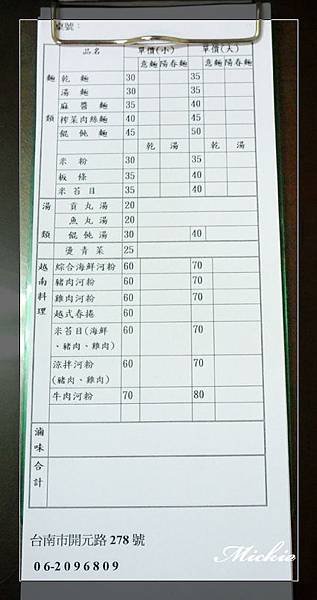 桌號：
品名 單價(小) 單價(大)
意麵 陽春麵 意麵 陽春麵
麵類
乾麵 30 35
湯麵 30 35
麻醬麵 35 40
榨菜肉絲麵 40 45
餛飩麵 45 50
乾 湯 乾 湯
米粉 30 35
板條 35 40
米苔目 35 40
湯類
貢丸湯 20
魚丸湯 20
餛飩湯 30 40
燙青菜 25
越南料理
綜合海鮮河粉 60 70
豬肉河粉 60 70
雞肉河粉 60 70
越式春捲 60
米苔目(海鮮 60 70
、豬肉、雞肉)
涼拌河粉 60 70
(豬肉、雞肉)
牛肉河粉 70 80
滷味
合計
台南市開元路278號
06-2096809
Mickie